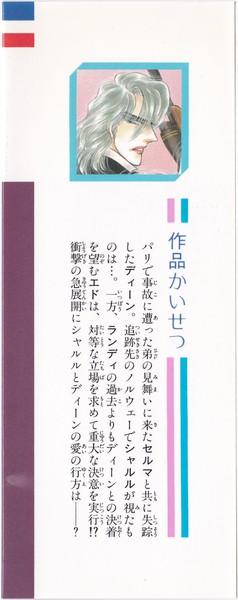 作品かいせつ
パリで事故に遭った弟の見舞いに来たセルマと共に失踪
したディーン。追跡先のノルウェーでシャルルが視たも
のは…。一方、ランディの過去よりもディーンとの決着
を望むエドは、対等な立場を求めて重大な決意を実行!?
衝撃の急展開にシャルルとディーンの愛の行方は――?